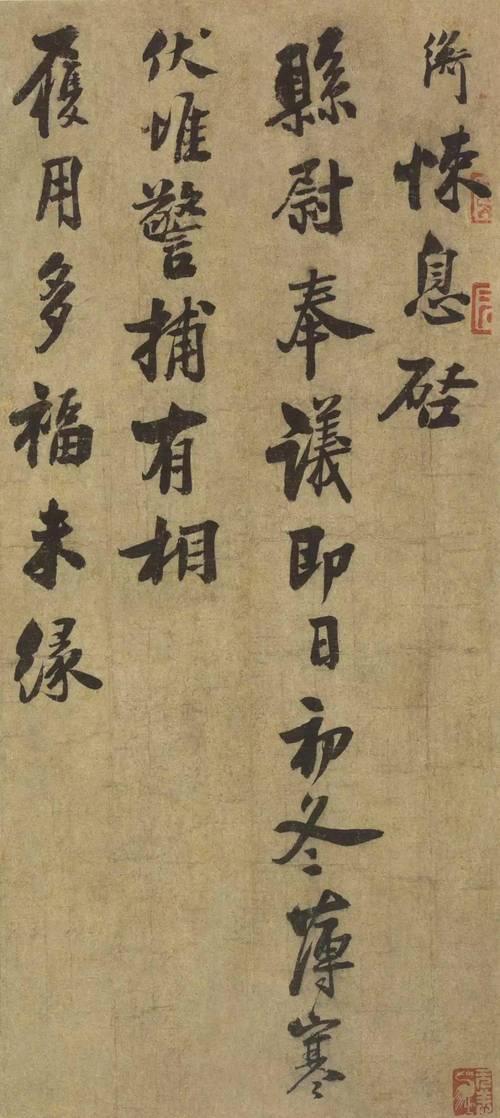 悚息啓
縣尉奉議即日初冬薄寒
伏惟警捕有相
履用多福未緣